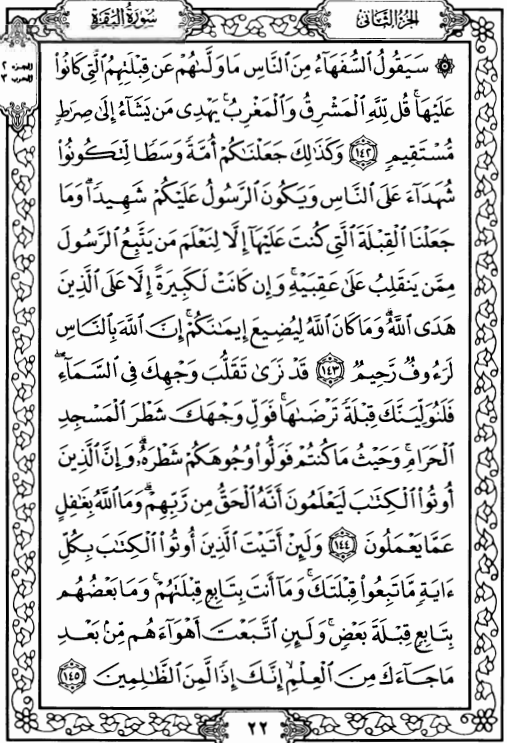 سُورَةُ البَقَرَةِ
الجزءُ الثَّانى
الجزء ٢
الحزب ٣
۞ سَيَقُولُ ٱلسُّفَهَآءُ مِنَ ٱلنَّاسِ مَا وَلَّىٰهُمْ عَن قِبْلَتِهِمُ ٱلَّتِى كَانُوا۟
عَلَيْهَا ۚ قُل لِّلَّهِ ٱلْمَشْرِقُ وَٱلْمَغْرِبُ ۚ يَهْدِى مَن يَشَآءُ إِلَىٰ صِرَٰطٍ
مُّسْتَقِيمٍ ١٤٢ وَكَذَٰلِكَ جَعَلْنَٰكُمْ أُمَّةً وَسَطًا لِّتَكُونُوا۟
شُهَدَآءَ عَلَى ٱلنَّاسِ وَيَكُونَ ٱلرَّسُولُ عَلَيْكُمْ شَهِيدًا ۗ وَمَا
جَعَلْنَا ٱلْقِبْلَةَ ٱلَّتِى كُنتَ عَلَيْهَآ إِلَّا لِنَعْلَمَ مَن يَتَّبِعُ ٱلرَّسُولَ
مِمَّن يَنقَلِبُ عَلَىٰ عَقِبَيْهِ ۚ وَإِن كَانَتْ لَكَبِيرَةً إِلَّا عَلَى ٱلَّذِينَ
هَدَى ٱللَّهُ ۗ وَمَا كَانَ ٱللَّهُ لِيُضِيعَ إِيمَٰنَكُمْ ۚ إِنَّ ٱللَّهَ بِٱلنَّاسِ
لَرَءُوفٌ رَّحِيمٌ ١٤٣ قَدْ نَرَىٰ تَقَلُّبَ وَجْهِكَ فِى ٱلسَّمَآءِ ۖ
فَلَنُوَلِّيَنَّكَ قِبْلَةً تَرْضَىٰهَا ۚ فَوَلِّ وَجْهَكَ شَطْرَ ٱلْمَسْجِدِ
ٱلْحَرَامِ ۚ وَحَيْثُ مَا كُنتُمْ فَوَلُّوا۟ وُجُوهَكُمْ شَطْرَهُۥ ۗ وَإِنَّ ٱلَّذِينَ
أُوتُوا۟ ٱلْكِتَٰبَ لَيَعْلَمُونَ أَنَّهُ ٱلْحَقُّ مِن رَّبِّهِمْ ۗ وَمَا ٱللَّهُ بِغَٰفِلٍ
عَمَّا يَعْمَلُونَ ١٤٤ وَلَئِنْ أَتَيْتَ ٱلَّذِينَ أُوتُوا۟ ٱلْكِتَٰبَ بِكُلِّ
ءَايَةٍ مَّا تَبِعُوا۟ قِبْلَتَكَ ۚ وَمَآ أَنتَ بِتَابِعٍ قِبْلَتَهُمْ ۚ وَمَا بَعْضُهُم
بِتَابِعٍ قِبْلَةَ بَعْضٍ ۚ وَلَئِنِ ٱتَّبَعْتَ أَهْوَآءَهُم مِّنۢ بَعْدِ
مَا جَآءَكَ مِنَ ٱلْعِلْمِ ۙ إِنَّكَ إِذًا لَّمِنَ ٱلظَّٰلِمِينَ ١٤٥
٢٢